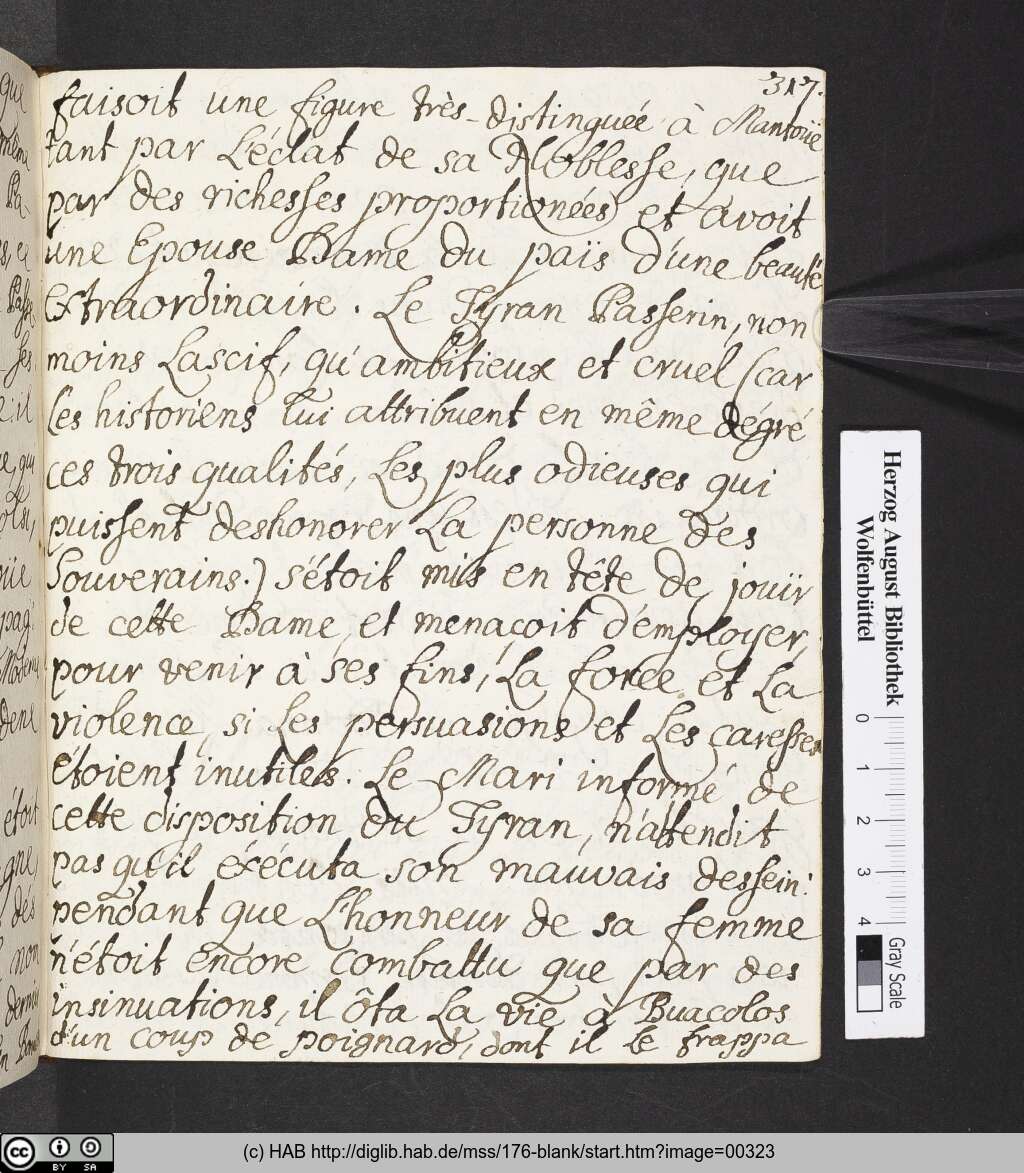 317.
faisoit une figure très-distinguée à Mantoüe
tant par l'éclat de sa Noblesse, que
par des richesses proportionées, et avoit
une Epouse Dame du païs d'une beauté
extraordinaire. Le Tyran Passerin, non
moins lascif, qu'ambitieux et cruel (car
les historiens lui attribuent en même dégré
ces trois qualités, les plus odieuses qui
puissent deshonorer la personne des
Souverains.) s'étoit mis en tête de jouïr
de cette Dame, et menaçoit d'employer,
pour venir à ses fins, la force et la
violence, si les persuasions et les caresses
étoient inutiles. Le Mari informé de
cette disposition du Tyran, n'attendit
pas qu'il éxécuta son mauvais dessein:
pendant que l'honneur de sa femme
n'étoit encore combattu que par des
insinuations, il ôta la vie à Buacolos
d'un coup de poignard, dont il le frappa
Herzog August Bibliothek
Wolfenbüttel
0 1 2 3 4
Gray Scale
cc BY SA
(c) HAB http://diglib.hab.de/mss/176-blank/start.htm?image=00323